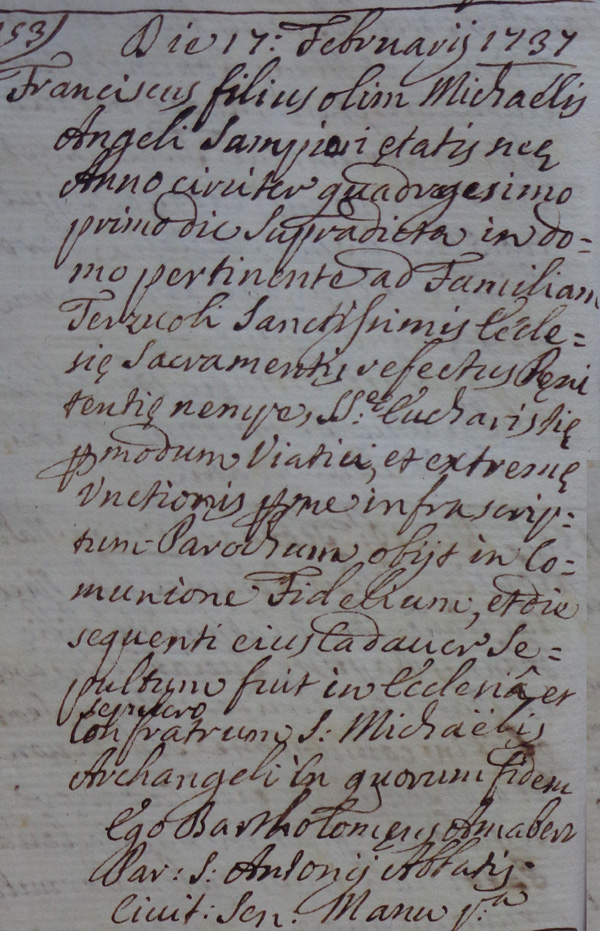 193) Die 17: Februarij 1737
Franciscus filius olim Michaelis
Angeli Sampieri ętatis sęę
Anno circiter quadragesimo
primo die supradicta in do=
mo pertinente ad Familiam
Terzuoli Sanctissimis Eccle=
się Sacramentis refectus Pęni
tentię nempe, SS.ę Eucharistię
p modum Viatici, et extremę
Unctionis p me infrascrip=
tum Parochum obijt in Co=
munione Fidelium, et die
sequenti eius Cadaver Se=
pultum fuit in Ecclesiâ et
sepulcro
Confratrum S: Michaëlis
Archangeli In quorum fidem
Ego Bartholomęus
Par: S: Antonij Abbatis
Civit: Sen: Manu p.ª